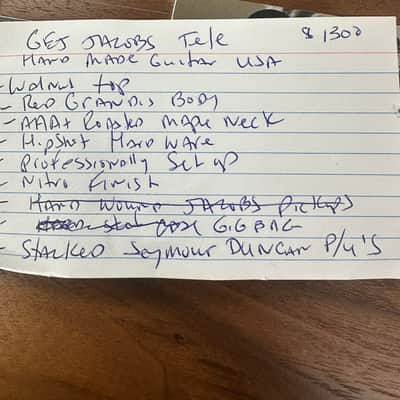 GEJ JACOBS Tele $1300
HAND MADE Guitar USA
- Walnut top
- Red GRANDIS BODY
- AAA+ Roasted Maple Neck
- HipShot Hard Ware
- Professionally Set up
- Nitro Finish
- HAND Wound JACOBS Pickups
- GIG BAG
- STACKED Seymour DUNCAN P/U'S